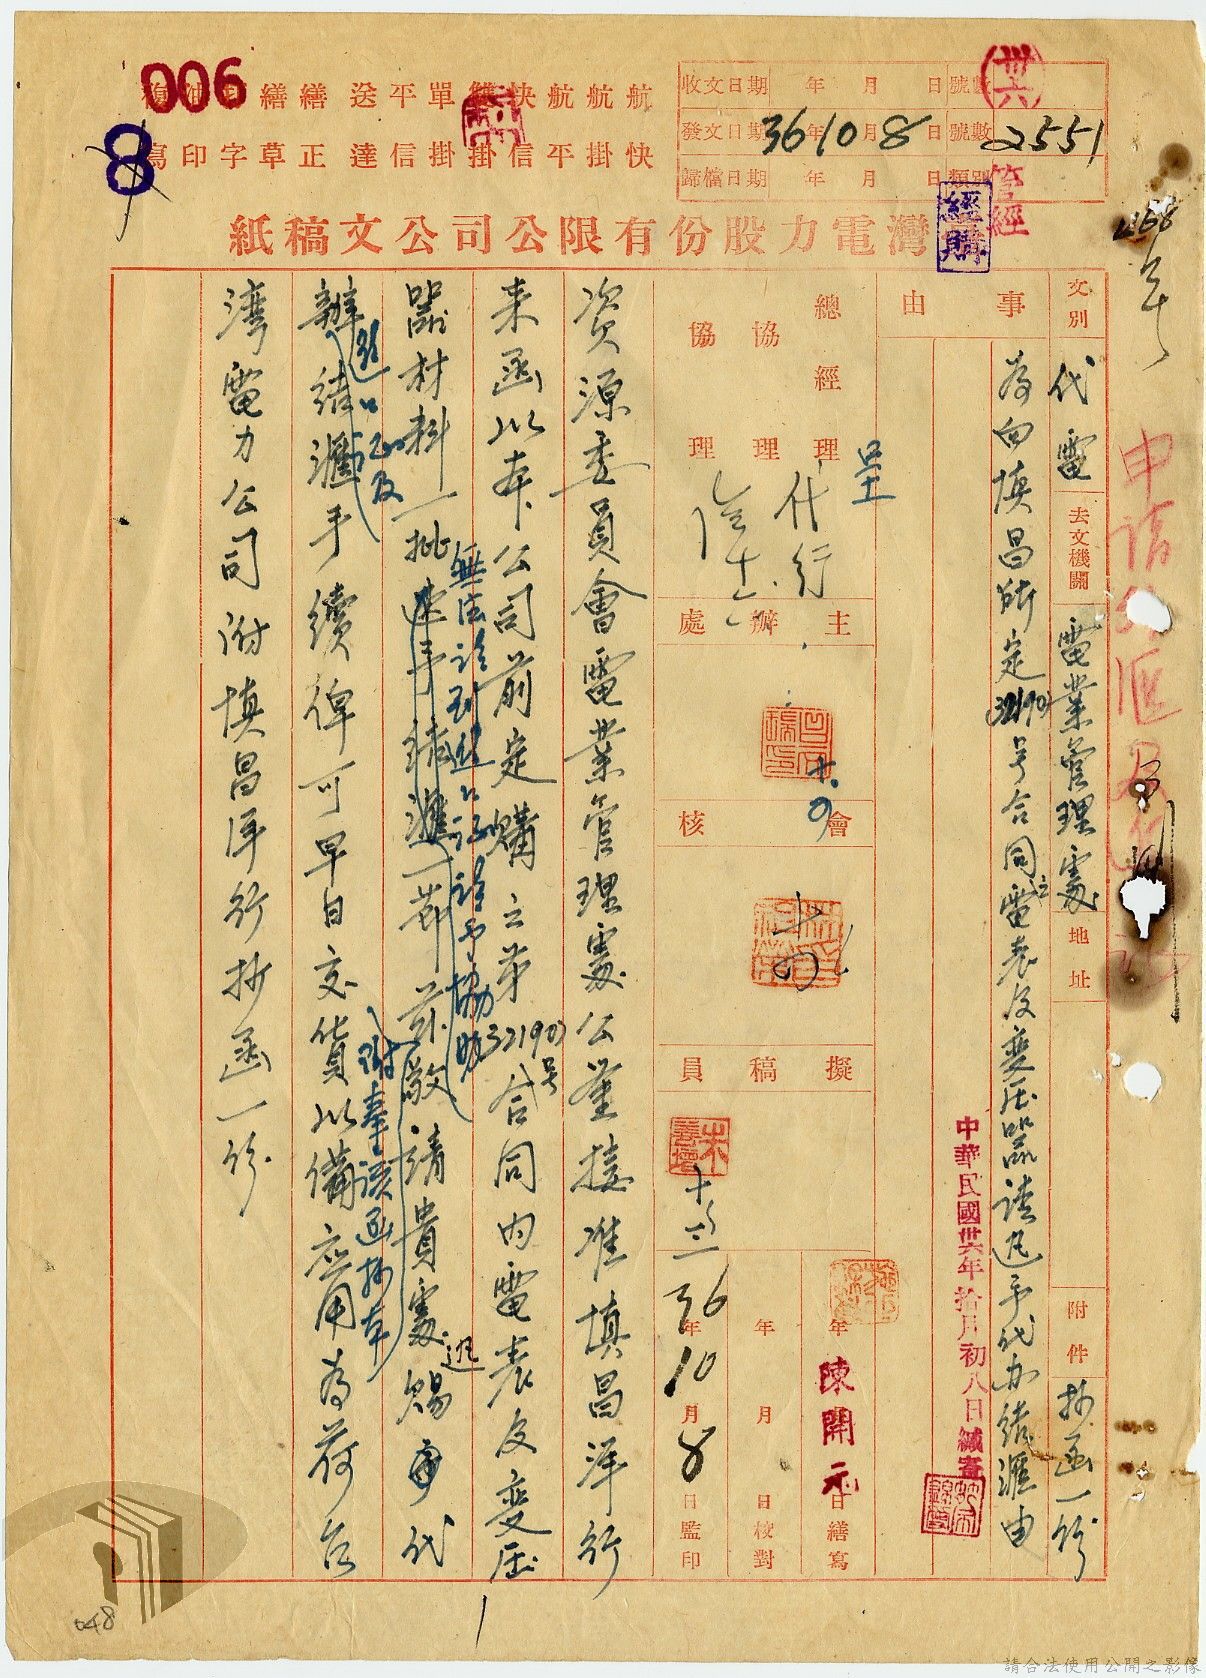 006
8
航 航 航 快 雙 單 平 送 繕 繕
快 掛 平 信 掛 掛 信 達 正 草 字 印 寫
收文日期 年 月 日 號數
發文日期 36年10月8日 號數 2551
歸檔日期 年 月 日 類別
卅六
管經
經購
灣電力股份有限公司公文稿紙
申請外匯
文別 代電
去文機關 電業管理處
地址
附件 抄函一份
事由
為向慎昌所定(32190)号合同之電表及變压器請迅予代办結滙由
中華民國卅六年拾月初八日緘寄
總經理
協理
協理
呈
代行
主辦處
會核
擬稿員
年 月 日 繕寫
陳開元
年 月 日 校對
36年10月8日 監印
資源委員會電業管理處公鑒接准慎昌洋行
来函以本公司前定購之第32190号合同內電表及變压
器材料一批 無法 請予協助 茲敬請貴處迅賜予代
辦 結滙手續俾可早日交貨以備應用為荷台
附奉該函抄本
灣電力公司附慎昌洋行抄函一份
048
請合法使用公開之影像